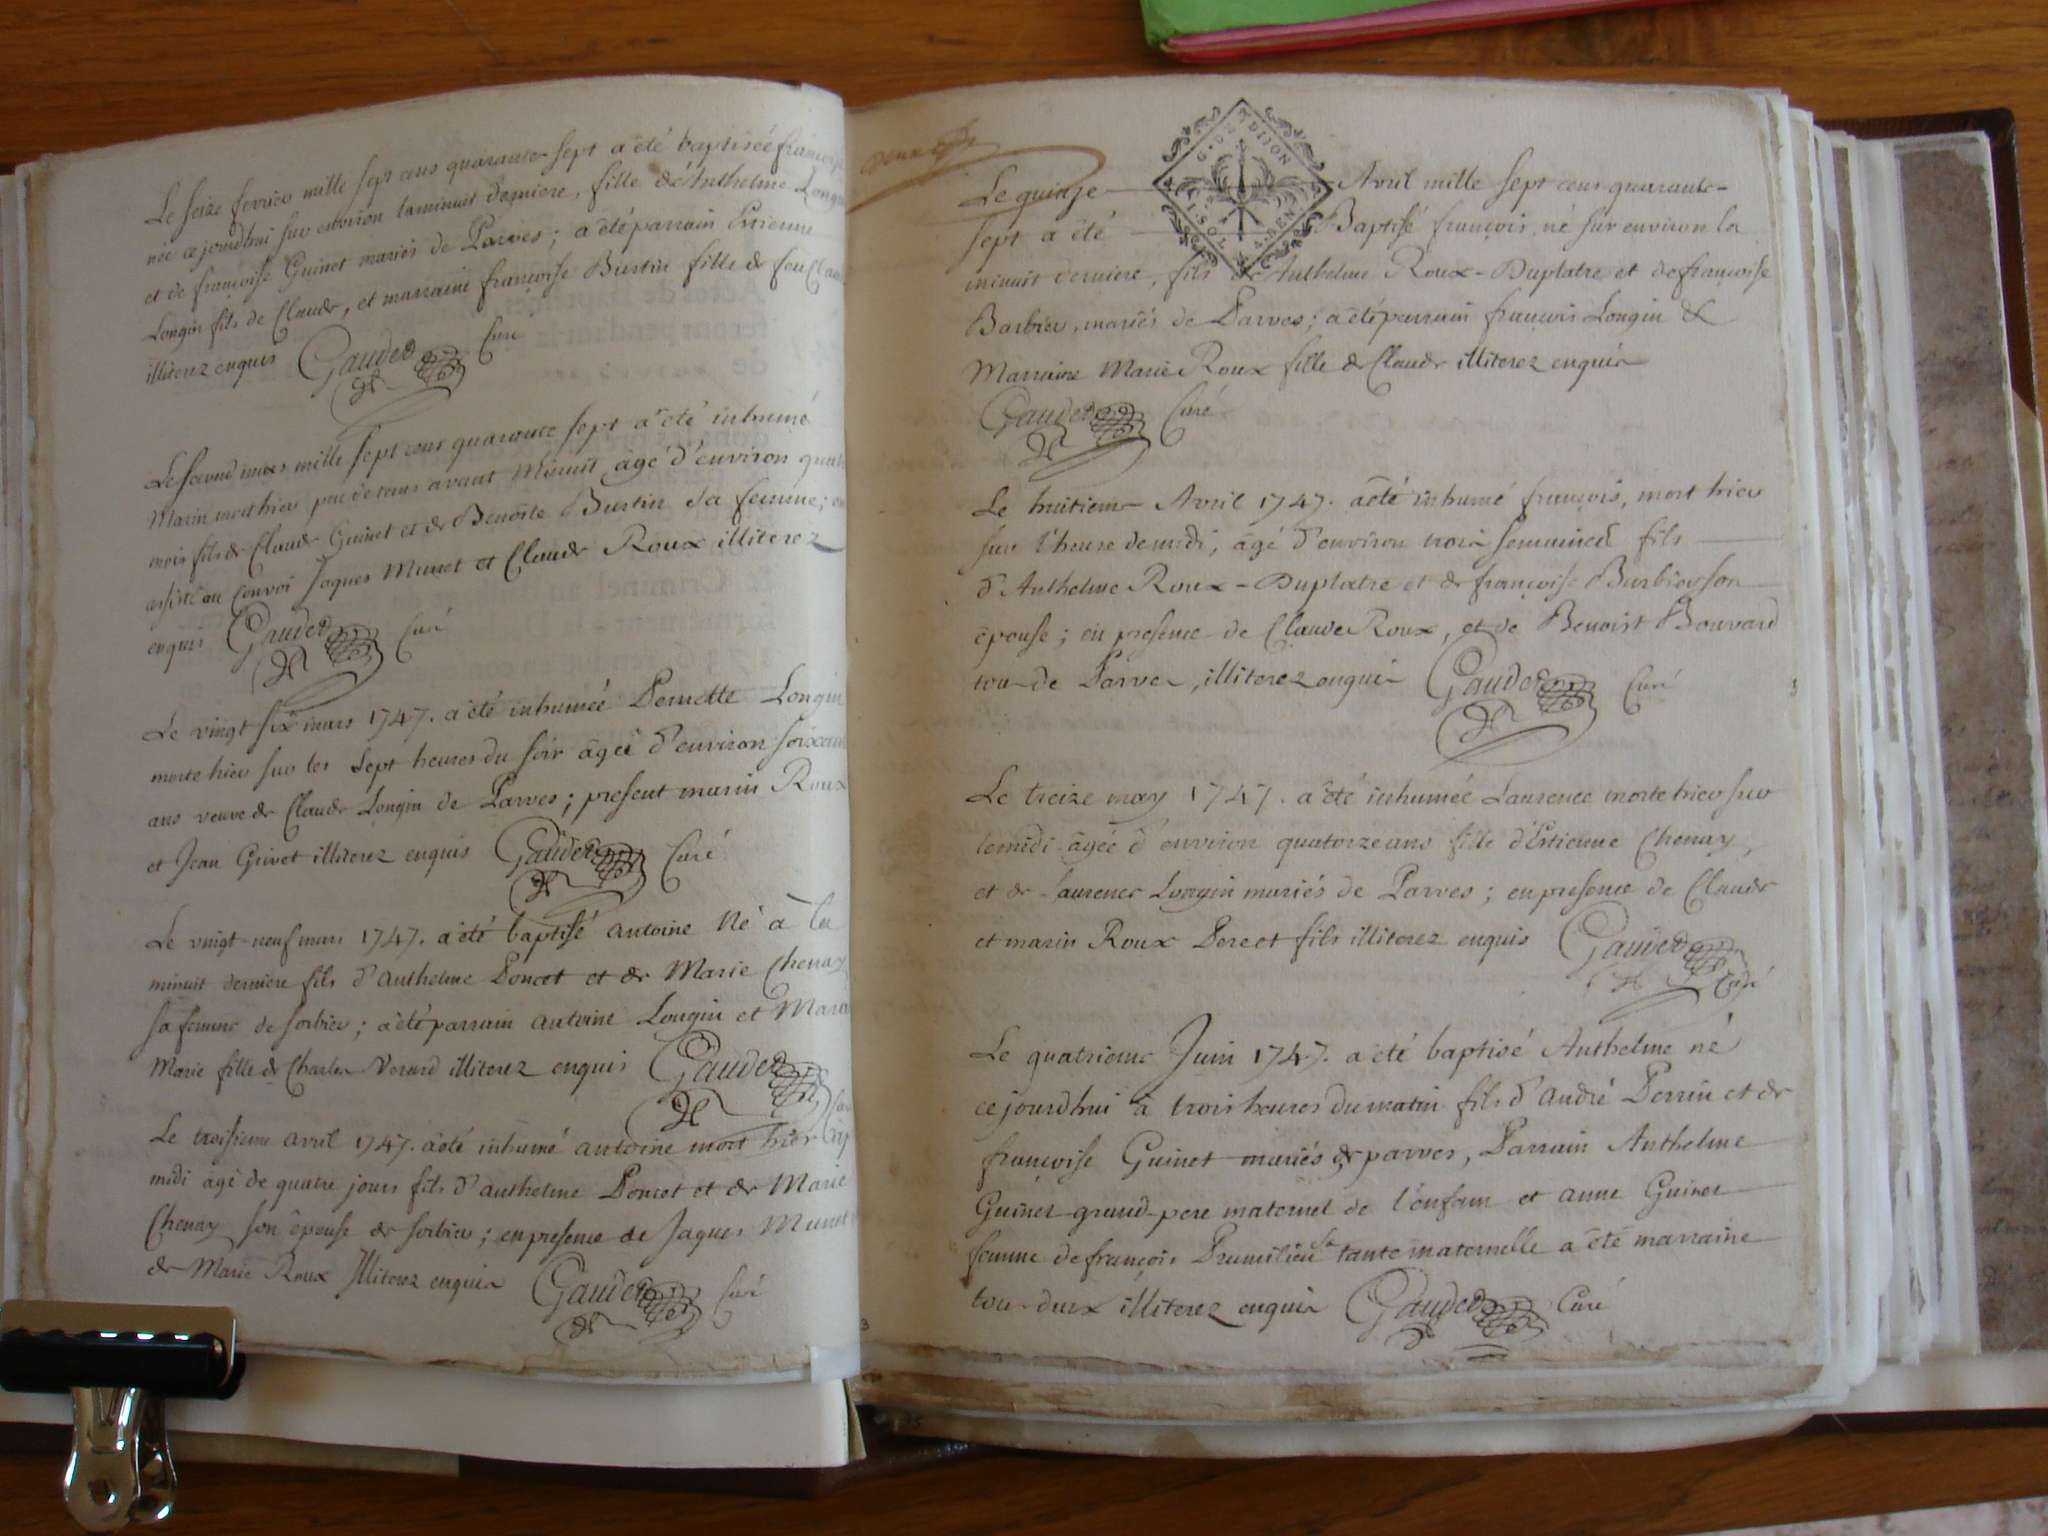 Le seize fevrier mille sept cens quarante-sept a été baptisée françoise
née ce jourdhui sur environ la minuit derniere, fille d'Anthelme Longin
et de françoise Guinet mariés de Parves; a été parrain Etienne
Longin fils de Claude, et marraine françoise Bustin fille de feu Claude
illiterez enquis Gaudet Curé
Le second mars mille sept cens quarante sept a été inhumé
Marin mort hier peu de tems avant Minuit, âgé d'environ quatre
mois fils de Claude Guinet et de Benoîte Bustin sa femme;
assisté au Convoi Jaques Munet et Claude Roux illiterez
enquis Gaudet Curé
Le vingt six mars 1747. a été inhumée Pernette Longin
morte hier sur les sept heures du soir âgée d'environ soixante
ans veuve de Claude Longin de Parves; present marin Roux
et Jean Grivet illiterez enquis Gaudet Curé
Le vingt-neuf mars 1747. a été baptisé antoine Né à la
minuit derniere fils d'anthelme Poncet et de Marie Chenay
sa femme de sorbier; a été parrain antoine Longin et Marraine
Marie fille de Charles Verard illiterez enquis Gaudet
Le troisieme avril 1747. a été inhumé antoine mort hier
midi âgé de quatre jours fils d'anthelme Poncet et de Marie
Chenay son épouse de sorbier; en presence de Jaques Munet
de Marie Roux Illiterez enquis Gaudet Curé
G. D. DIJON
Le quinze Avril mille sept cens quarante-
sept a été Baptisé françois, né sur environ la
minuit derniere, fils de Anthelme Roux-Duplatre et de françoise
Barbier, mariés de Parves; a été parrain françois Longin &
Marraine Marie Roux fille de Claude illiterez enquis
Gaudet Curé
Le huitieme Avril 1747. a été inhumé françois, mort hier
sur l'heure de midi, âgé d'environ trois semaines fils
d'Anthelme Roux-Duplatre et de françoise Burbier son
épouse; en presence de Claude Roux, et de Benoist Bouvard
tous de Parves, illiterez enquis Gaudet Curé
Le treize may 1747. a été inhumée Laurence morte hier sur
le midi âgée d'environ quatorze ans fille d'Estienne Chenay,
et de Laurence Longin mariés de Parves; en presence de Claude
et marin Roux Pere et fils illiterez enquis Gaudet
Curé
Le quatrieme Juin 1747. a été baptisé Anthelme né
ce jourdhui à trois heures du matin fils d'André Perrin et de
françoise Guinet mariés de parves, Parrain Anthelme
Guinet grand-pere maternel de l'enfant et anne Guinet
femme de françois Prumilieu sa tante maternelle a été marraine
tous deux illiterez enquis Gaudet Curé